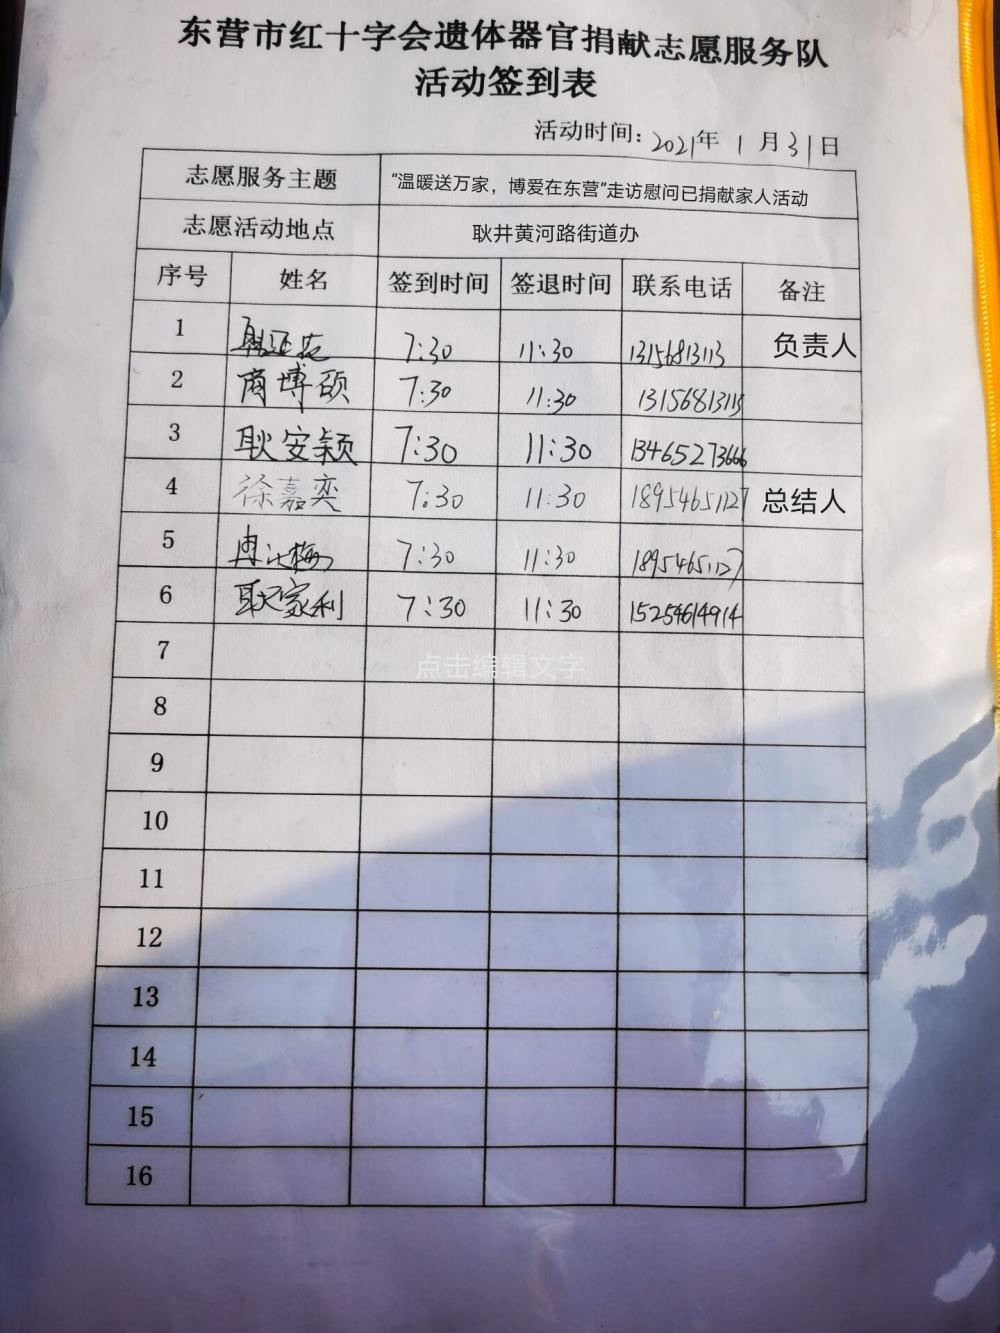 东营市红十字会遗体器官捐献志愿服务队
活动签到表
活动时间：2021年 1 月 31 日
志愿服务主题 “温暖送万家，博爱在东营”走访慰问已捐献家人活动
志愿活动地点 耿井黄河路街道办
序号 姓名 签到时间 签退时间 联系电话 备注
1 7:30 11:30 13156813113 负责人
2 商博硕 7:30 11:30 13156813115
3 耿安颖 7:30 11:30 13465273666
4 徐嘉奕 7:30 11:30 18954651127 总结人
5 7:30 11:30 18954651127
6 耿家利 7:30 11:30 15254614914
7 点击编辑文字
8
9
10
11
12
13
14
15
16